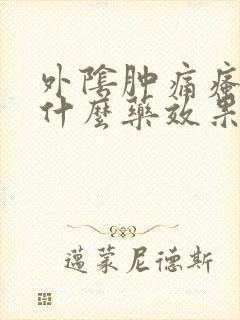 外陰肿痛瘙
什麼藥效果
邁蒙尼德斯